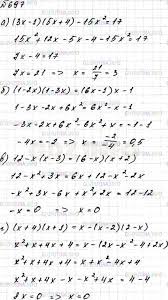 №697
а) (3x-1)(5x+4)-15x²=17
15x²+12x-5x-4-15x²=17
7x-4=17
7x=21 => x=21/7=3
б) (1-2x)(1-3x)=(6x-1)x-1
1-3x-2x+6x²=6x²-x-1
-3x-2x+6x²-6x²+x=-1-1
-4x=-2 => x=-2/-4=0,5
в) 12-x(x-3)=(6-x)(x+2)
12-x²+3x=6x+12-x²-2x
-x²+3x-6x+x²+2x=12-12
-x=0 => x=0
г) (x+4)(x+1)=x-(x-2)(2-x)
x²+x+4x+4=x-(2x-x²-4+2x)
x²+x+4x+4=x+x²-4x+4
x²+x+4x-x-x²+4x=4-4
8x=0 => x=0